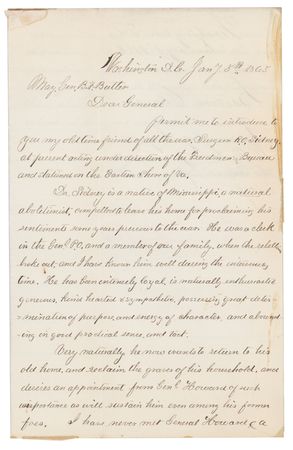 Washington D.C. Jan'y 8th 1865
Maj. Gen B.F. Butler
Dear General
Permit me to introduce to
you my old time friend of all the war, Surgeon R.C. Sidney,
at present acting under direction of the Freedmen's Bureau
and stationed on the Eastern Shore of Va.
Dr. Sidney is a native of Mississippi, a natural
abolitionist, compelled to leave his home for proclaiming his
sentiments some years previous to the war. He was a clerk
in the Genl P.O. and a member of our family, when the rebell
broke out, and I have known him well during the intervening
time. He has been entirely loyal, is naturally enthusiastic
generous, kind hearted & sympathetic, possessing great deter-
mination of purpose and energy of character, and abound-
ing in good practical sense, and tact.
Very naturally he now wants to return to his
old home, and reclaim the graves of his household, and
desires an appointment from Genl Howard of such
importance as will sustain him even among his former
foes. I have never met General Howard & a